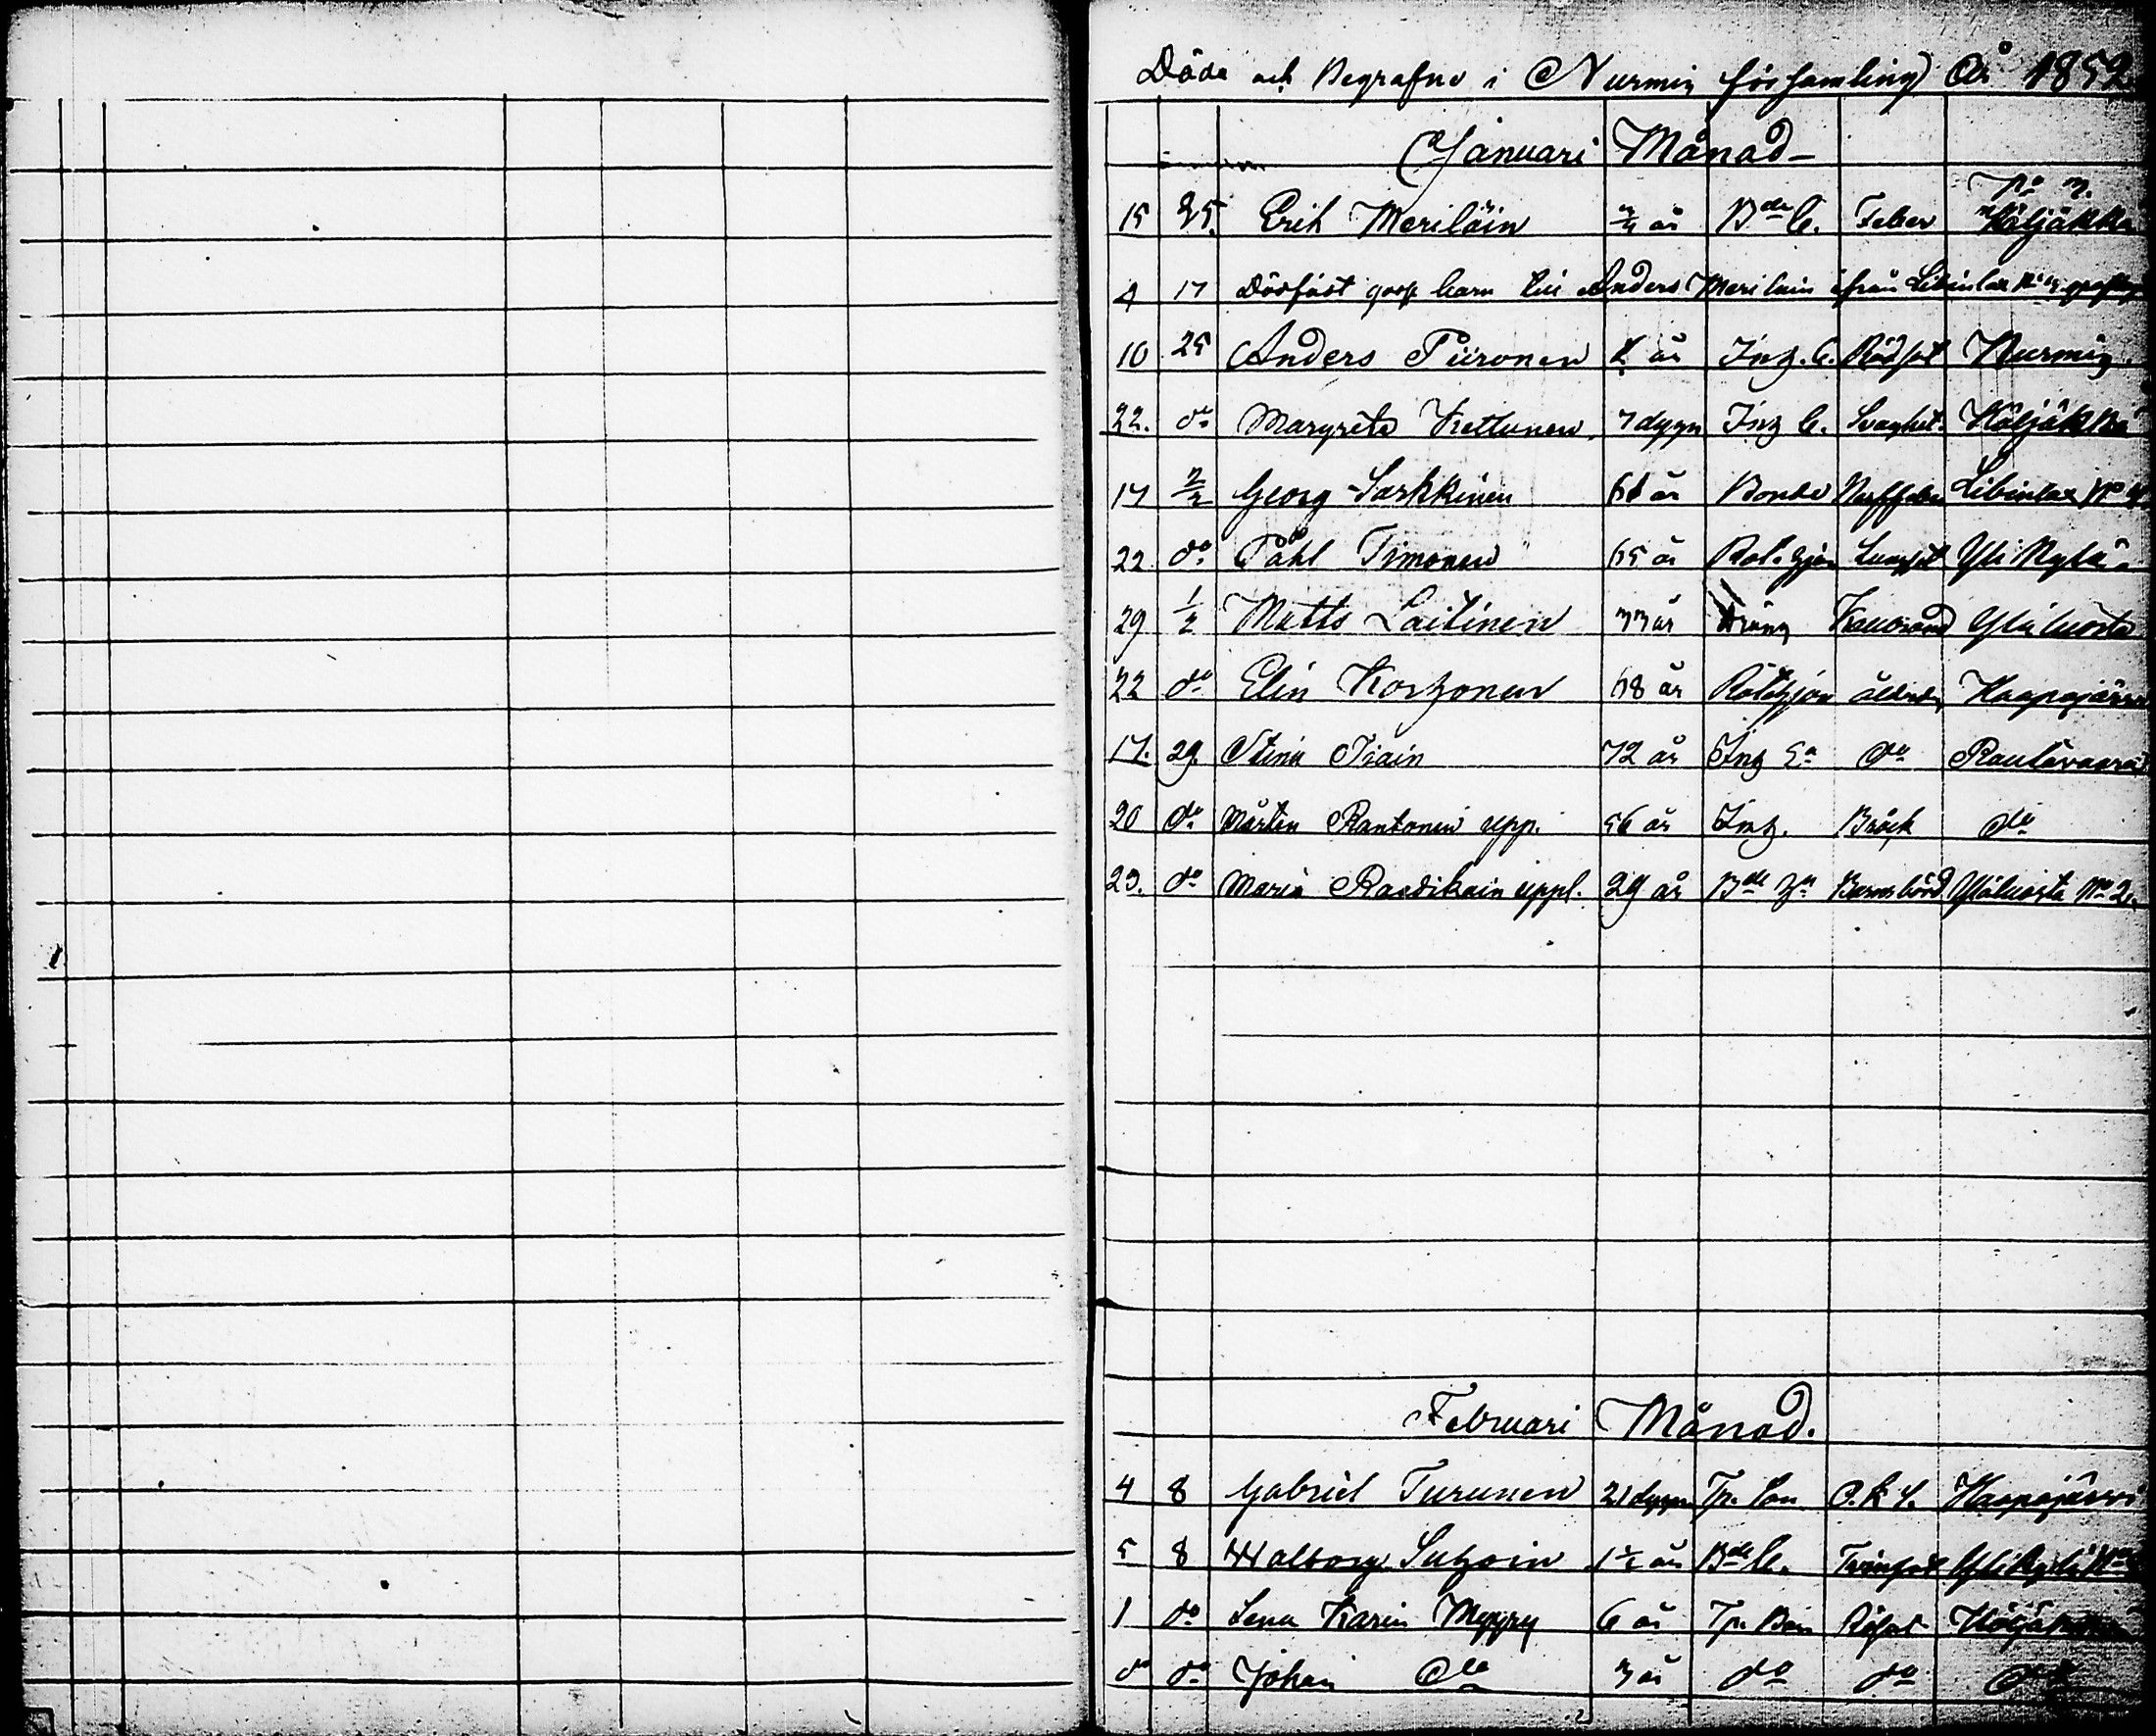 Döda och Begrafne i Nurmis församling År 1852.
Januari Månad
No 3.
15 25. Erik Meriläin 3/4 år Bde b. Feber Höljäkkä
4 17 Dödfödt goss barn till Anders Meriläin ifrån Libinlax
10 25 Anders Piironen år Inh. b. Rödsot Nurmis
22. do Margreta Kettunen 7 dygn Inh b. Svaghet Höljäkkä
17 2/2 Georg Sarkkinen 61 år Bonde Nerffeber Libinlax No
22 do Påhl Timonen 65 år Rot. hjon Lungsot Yli Kylä
29 1/2 Matts Laitinen 33 år Dräng Yläluosta
22 do Elin Korhonen 68 år Rotehjon ålderdom Haapajärvi
17. 29. Stina Piain 72 år Inh Ea do Rautavaara
20 do Mårten Rantonen upp. 56 år Inh. Bråck do
23. do Maria Raedikain uppl. 29 år Bde ha Barnsbörd Yläluosta No 2.
Februari Månad.
4 8 Gabriel Turunen 21 dygn Tp. Son O.k.s. Haapajärvi
5 8 Walborg Suhoin 1 1/2 år Bde b. Tvinsot Yli Kylä No
1 do Lena Karin Myyry 6 år Tp. Barn Rödsot Höljäkkä
do do Johan do 3 år do do do